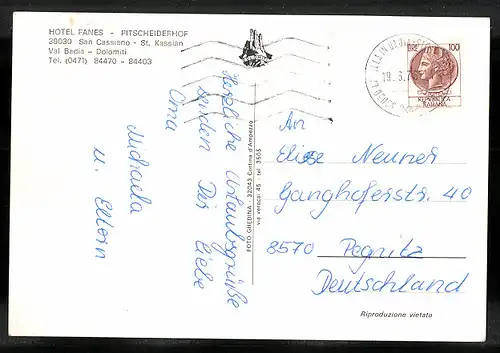 HOTEL FANES - PITSCHEIDERHOF
39030 San Cassiano - St. Kassian
Val Badia - Dolomiti
Tel. (0471) 84470 - 84403
LIRE 100
REPUBBLICA
ITALIANA
19.6.7
Herzliche Urlaubsgrüße
senden Dir liebe
Oma
Michaela
u. Eltern
FOTO GHEDINA - 32043 Cortina d'Ampezzo
via verocai 45 - tel 3505
An
Elise Neuner
Ganghoferstr. 40
8570 Pegnitz
Deutschland
Riproduzione vietata